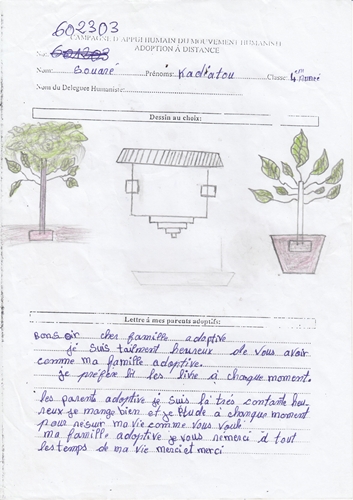 602303
CAMPAGNE D'APPUI HUMAIN DU MOUVEMENT HUMANISTE
ADOPTION À DISTANCE
No: 601303
Nom: Souaré Prénoms: Kadiatou Classe: 4ème Année
Nom du Deleguer Humaniste:
Dessin au choix:
Lettre à mes parents adoptifs:
Bonsoir cher famille adoptive
je suis tailment heureux de vous avoir
comme ma famille adoptive.
je préfère lit les livre à changue moment.
les parents adoptive je suis là trés contante heu-
reux je mange bien et je étude à changue moment
pour reçuir ma vie comme vous voulé
ma famille adoptive je vous remerci à tout
les temps de ma vie merci et merci